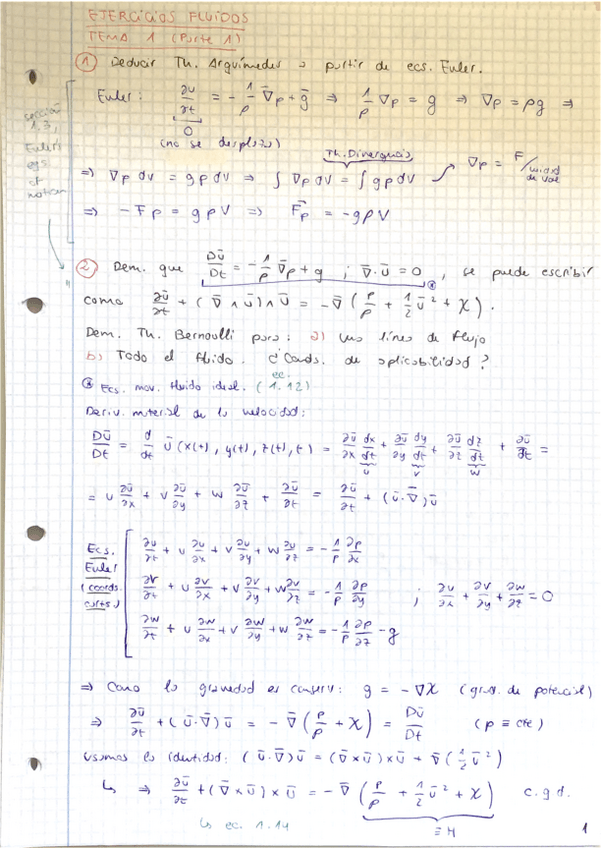 EJERCICIOS FLUIDOS
TEMA 1 (Parte 1)
① Deducir Th. Arquímedes a partir de ecs. Euler.
Euler: ∂u/∂t = -1/ρ ∇̄p + ḡ ⇒ 1/ρ ∇p = g ⇒ ∇p = ρg ⇒
0
(no se desplaza)
sección 1.3, Euler's eqs of motion
Th. Divergencia
⇒ ∇p dv = gρdv ⇒ ∫ ∇p dv = ∫ gρdv
∇p = F/unidad de vol
⇒ -Fp = gρV ⇒ F̄p = -gρV
② Dem. que Dū/Dt = -1/ρ ∇̄p + g ; ∇̄·ū = 0, se puede escribir
como ∂ū/∂t + (∇̄ ∧ ū) ∧ ū = -∇̄ (p/ρ + 1/2 ū² + χ).
Dem. Th. Bernoulli para: a) Una línea de flujo
b) Todo el fluido. ¿Conds. de aplicabilidad?
⊛ Ecs. mov. fluido ideal. (ec. 1.12)
Deriv. material de la velocidad:
Dū/Dt = d/dt ū (x(t), y(t), z(t), t) = ∂ū/∂x dx/dt + ∂ū/∂y dy/dt + ∂ū/∂z dz/dt + ∂ū/∂t =
u v w
= u ∂ū/∂x + v ∂ū/∂y + w ∂ū/∂z + ∂ū/∂t = ∂ū/∂t + (ū·∇̄)ū
Ecs. Euler (coords. carts.)
∂u/∂t + u ∂u/∂x + v ∂u/∂y + w ∂u/∂z = -1/ρ ∂p/∂x
∂v/∂t + u ∂v/∂x + v ∂v/∂y + w ∂v/∂z = -1/ρ ∂p/∂y ; ∂u/∂x + ∂v/∂y + ∂w/∂z = 0
∂w/∂t + u ∂w/∂x + v ∂w/∂y + w ∂w/∂z = -1/ρ ∂p/∂z - g
⇒ Como la gravedad es conserv: g = -∇χ (grad. de potencial)
⇒ ∂ū/∂t + (ū·∇̄)ū = -∇̄ (p/ρ + χ) = Dū/Dt (ρ ≡ cte)
Usamos la identidad: (ū·∇̄)ū = (∇̄×ū)×ū + ∇̄(1/2 ū²)
↳ ⇒ ∂ū/∂t + (∇̄×ū)×ū = -∇̄ (p/ρ + 1/2 ū² + χ) c.q.d.
↳ ec. 1.14
≡ H
1